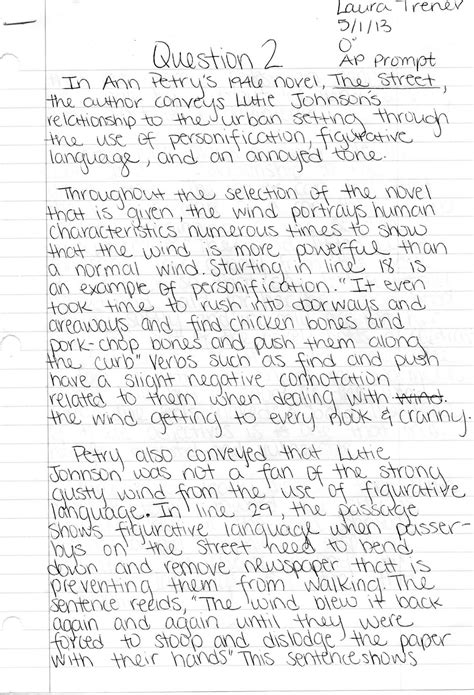 Laura Trener
5/1/13
0°
AP Prompt
Question 2
In Ann Petry's 1946 novel, The Street,
the author conveys Lutie Johnson's
relationship to the urban setting through
the use of personification, figurative
language, and an annoyed tone.
Throughout the selection of the novel
that is given, the wind portrays human
characteristics numerous times to show
that the wind is more powerful than
a normal wind. Starting in line 18 is
an example of personification. "It even
took time to rush into doorways and
areaways and find chicken bones and
pork-chop bones and push them along
the curb" Verbs such as find and push
have a slight negative connotation
related to them when dealing with wind.
the wind getting to every nook & cranny.
Petry also conveyed that Lutie
Johnson was not a fan of the strong
gusty wind from the use of figurative
language. In line 29, the passage
shows figurative language when passer-
bys on the street need to bend
down and remove newspaper that is
preventing them from walking. The
sentence reads, "The wind blew it back
again and again until they were
forced to stoop and dislodge the paper
with their hands" This sentence shows